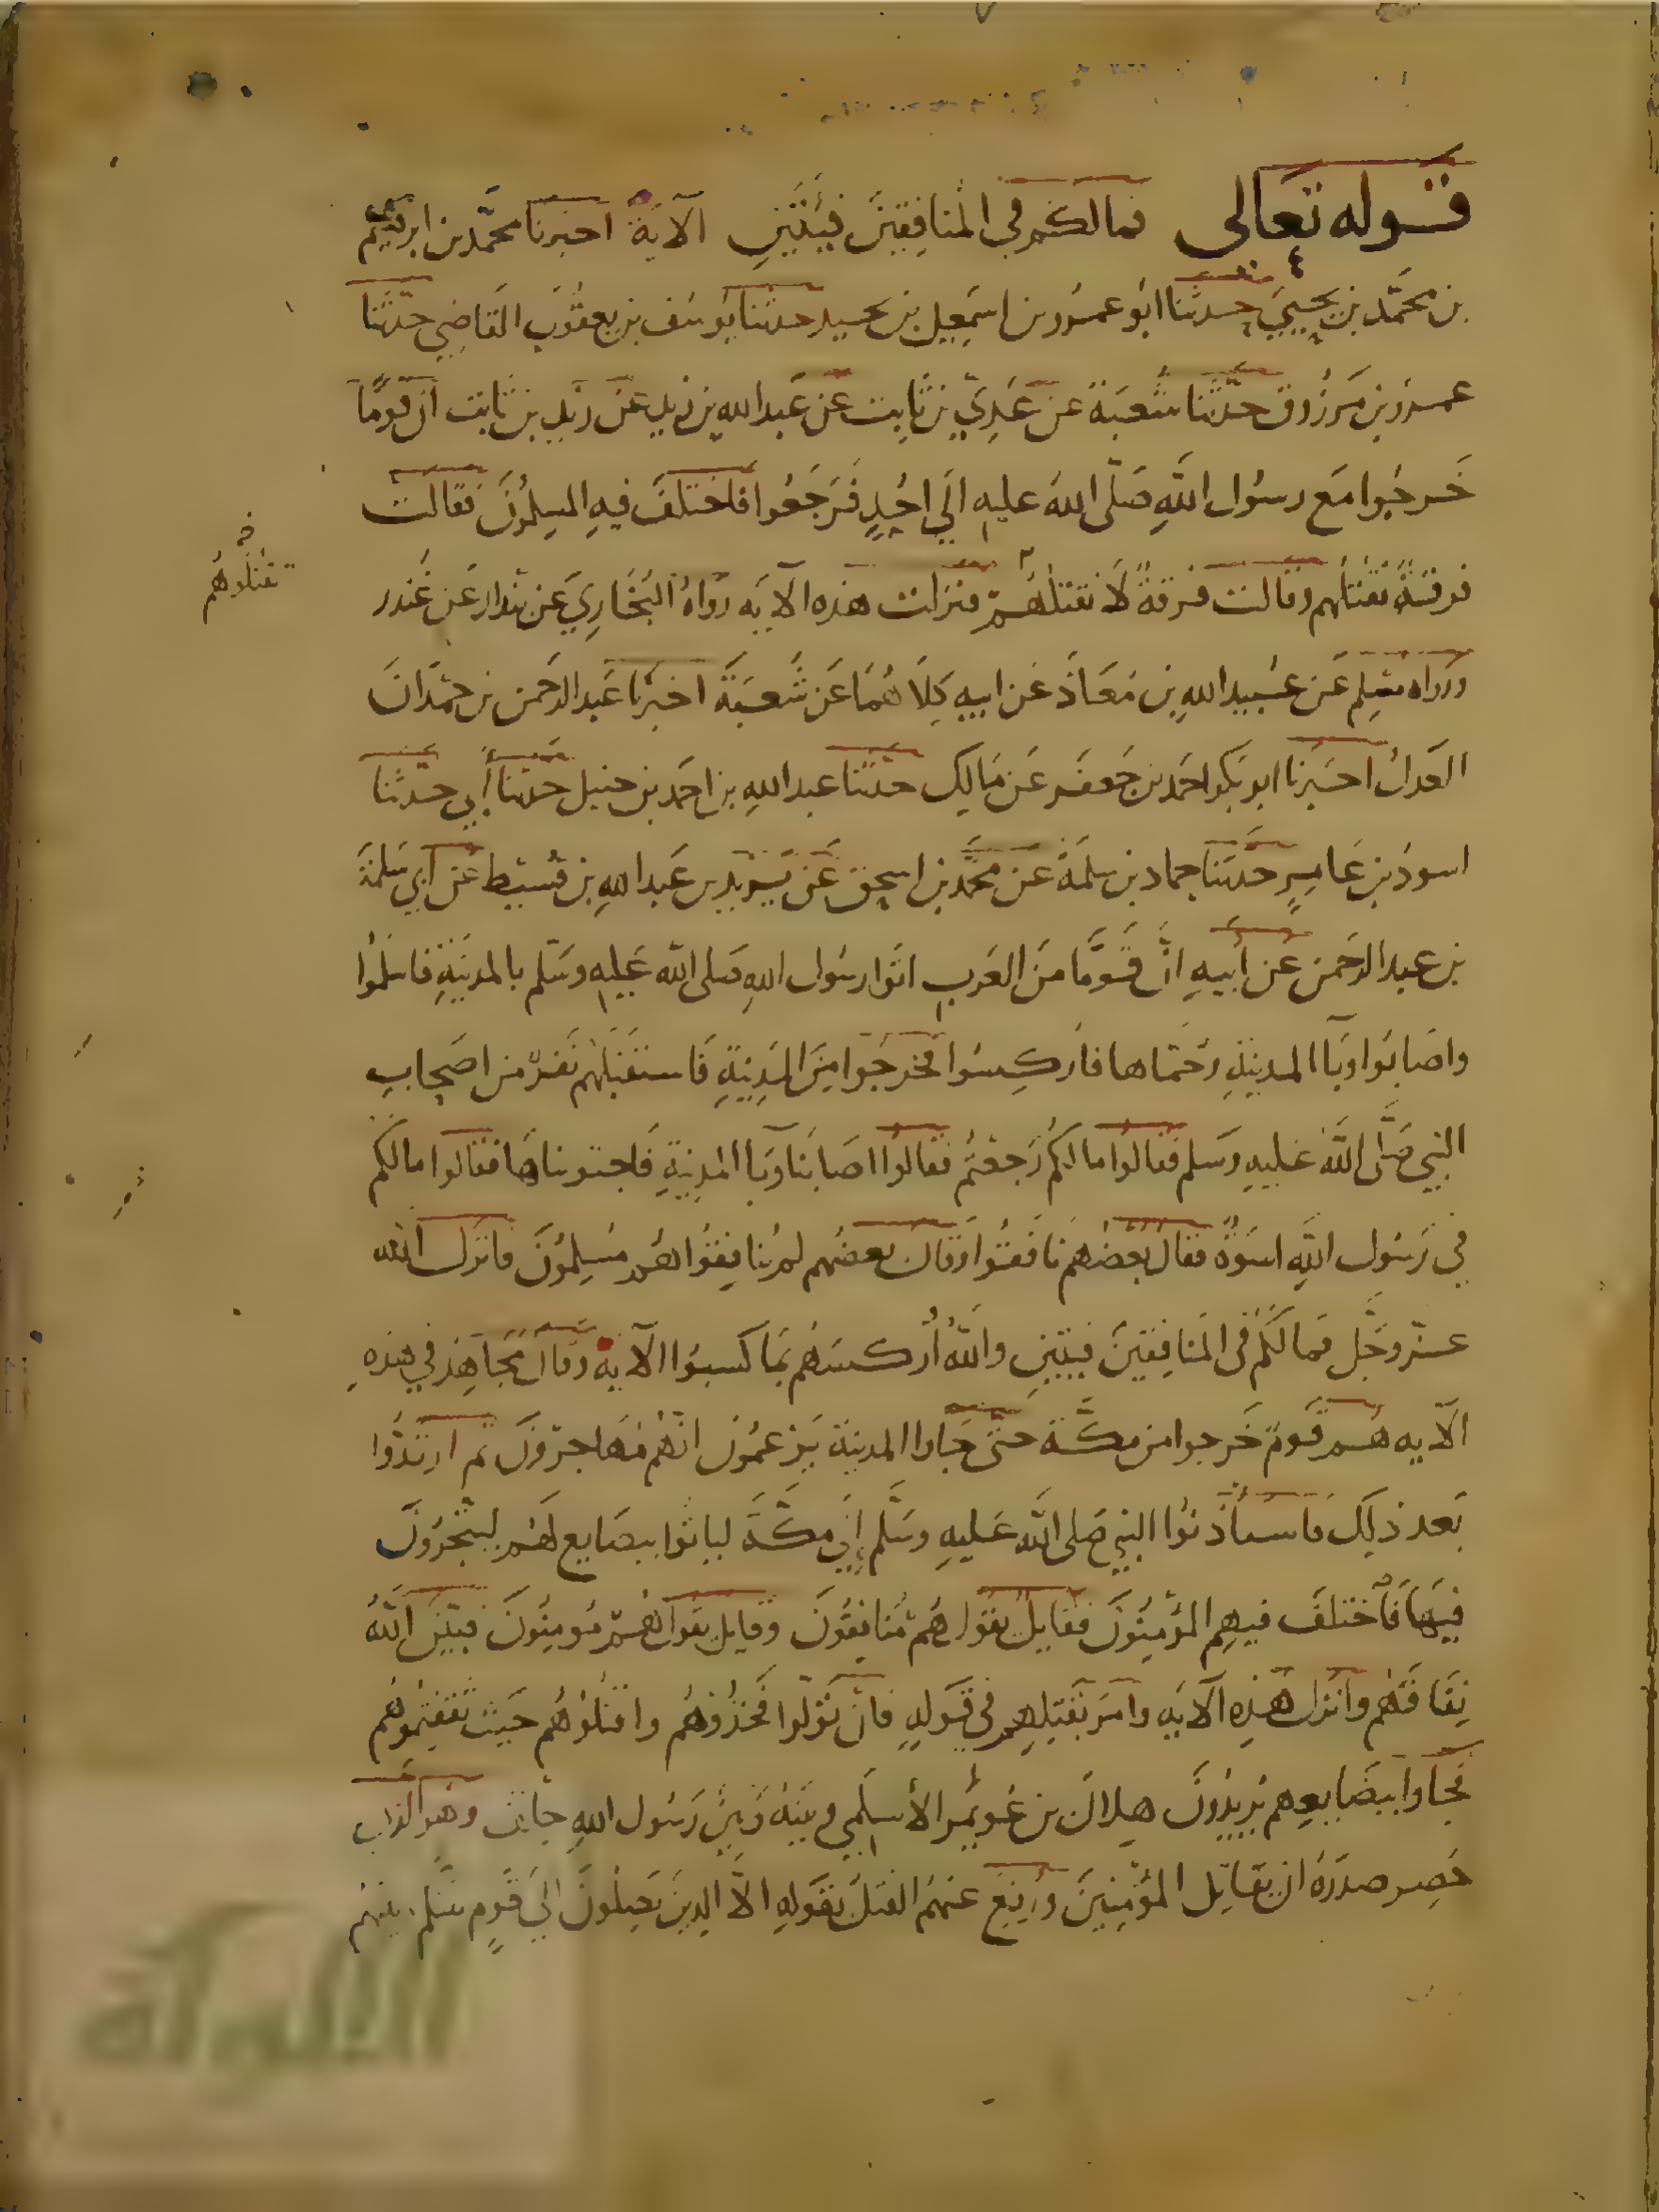 قوله تعالى فما لكم في المنافقين فئتين الآية اخبرنا محمد بن ابرهيم
بن محمد بن يحيى حدثنا ابو عمرو بن اسمعيل بن نجيد حدثنا يوسف بن يعقوب القاضي حدثنا
عمرو بن مرزوق حدثنا شعبة عن عدي بن ثابت عن عبد الله بن زيد عن زيد بن ثابت ان قوما
خرجوا مع رسول الله صلى الله عليه الي احد فرجعوا فاختلف فيه المسلمون فقالت
فرقة نقتلهم وقالت فرقة لا نقتلهم فنزلت هذه الآيه رواه البخاري عن بندار عن غندر
نقتلوهم
ورواه مسلم عن عبيد الله بن معاذ عن ابيه كلاهما عن شعبة اخبرنا عبد الرحمن بن حمدان
العدل اخبرنا ابو بكر احمد بن جعفر عن مالك حدثنا عبد الله بن احمد بن حنبل حدثنا أبي حدثنا
اسود بن عامر حدثنا حماد بن سلمة عن محمد بن اسحق عن يزيد بن عبد الله بن قسيط عن ابي سلمة
بن عبد الرحمن عن أبيه ان قوما من العرب اتوا رسول الله صلى الله عليه وسلم بالمدينة فاسلموا
واصابوا وبآ المدينة وحماها فاركسوا فخرجوا من المدينة فاستقبلهم نفر من اصحاب
النبي صلى الله عليه وسلم فقالوا ما لكم رجعتم فقالوا اصابنا وبآ المدينة فاجتويناها فقالوا ما لكم
في رسول الله اسوة فقال بعضهم نافقوا وقال بعضهم لم ينافقوا هم مسلمون فانزل الله
عز وجل فما لكم في المنافقين فئتين والله أركسهم بما كسبوا الآيه وقال مجاهد في هذه
الآيه هم قوم خرجوا من مكة حتى جاوا المدينة يزعمون انهم مهاجرون ثم ارتدوا
بعد ذلك فاستأذنوا النبي صلى الله عليه وسلم إلى مكة لياتوا ببضايع لهم ليتجرون
فيها فاختلف فيهم المؤمنون فقايل يقول هم منافقون وقايل يقول هم مومنون فبين الله
نفاقهم وانزل هذه الآيه وامر بقتلهم في قوله فان تولوا فخذوهم واقتلوهم حيث ثقفتموهم
فجاوا ببضايعهم يريدون هلال بن عويمر الأسلمي وبينه وبين رسول الله حلف وهو الذي
حصر صدره ان يقاتل المؤمنين ورفع عنهم القتل بقوله الا الذين يصلون الى قوم بينكم وبينهم